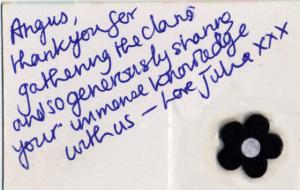 Angus,
thank you for
gathering the clans
and so generously sharing
your immense knowledge
with us – love Julia xxx